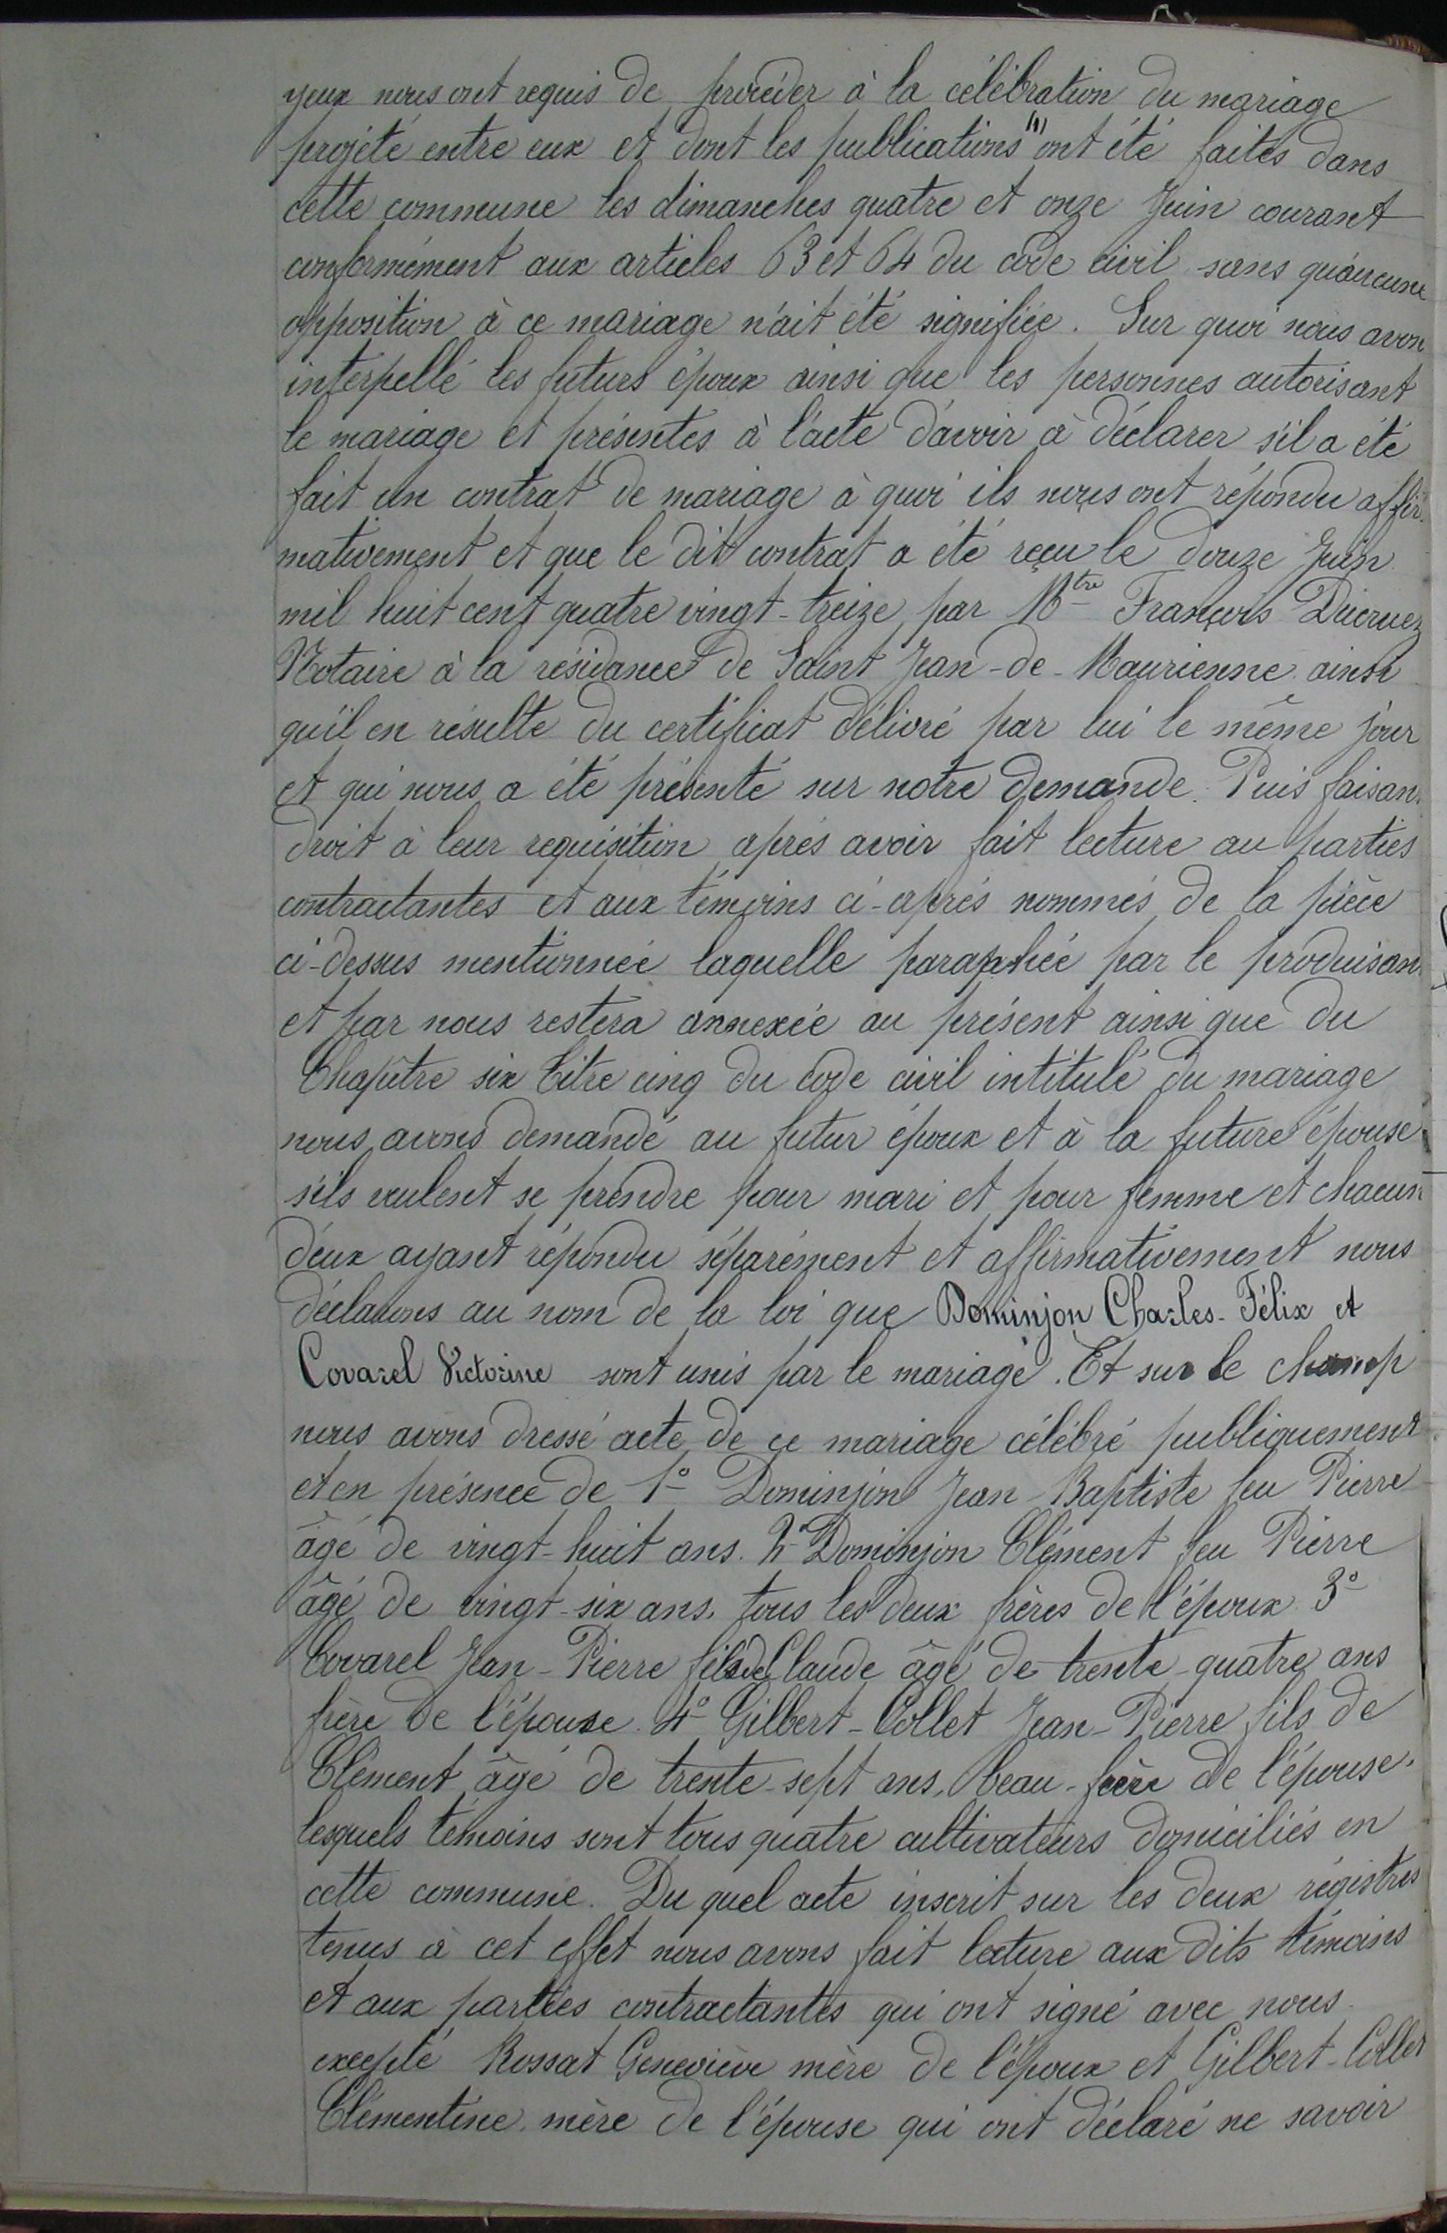 yeux nous ont requis de procéder à la célébration du mariage
projeté entre eux et dont les publications (1) ont été faites dans
cette commune les dimanches quatre et onze Juin courant
conformément aux articles 63 et 64 du code civil sans qu'aucune
opposition à ce mariage n'ait été signifiée. Sur quoi nous avon
interpellé les futurs époux ainsi que les personnes autorisant
le mariage et présentes à l'acte d'avoir à déclarer s'il a été
fait un contrat de mariage à quoi ils nous ont répondu affir-
mativement et que le dit contrat a été reçu le douze Juin
mil huit cent quatre vingt-treize par Mtre François Ducruez
Notaire à la résidance de Saint Jean-de-Maurienne ainsi
qu'il en résulte du certificat délivré par lui le même jour
et qui nous a été présenté sur notre demande. Puis faisan
droit à leur requisition après avoir fait lecture au parties
contractantes et aux témoins ci-après nommés de la pièce
ci-dessus mentionnée laquelle paraphée par le produisan
et par nous restera annexée au présent ainsi que du
Chapître six titre cinq du code civil intitulé du mariage
nous avons demandé au futur époux et à la future épouse
s'ils veulent se prendre pour mari et pour femme et chacun
d'eux ayant répondu séparément et affirmativement nous
déclarons au nom de la loi que Dominjon Charles-Félix et
Covarel Victorine sont unis par le mariage. Et sur le champ
nous avons dressé acte de ce mariage célébré publiquement
et en présence de 1° Dominjon Jean-Baptiste feu Pierre
âgé de vingt-huit ans. 2° Dominjon Clément feu Pierre
âgé de vingt-six ans, tous les deux frères de l'époux 3°
Covarel Jean-Pierre fils de Claude âgé de trente-quatre ans
frère de l'épouse. 4° Gilbert-Collet Jean-Pierre fils de
Clément âgé de trente-sept ans, beau-frère de l'épouse.
lesquels témoins sont tous quatre cultivateurs domiciliés en
cette commune. Du quel acte inscrit sur les deux régistres
tenus à cet effet nous avons fait lecture aux dits témoins
et aux parties contractantes qui ont signé avec nous
excepté Rossat Geneviève mère de l'époux et Gilbert-Collet
Clémentine mère de l'épouse qui ont déclaré ne savoir